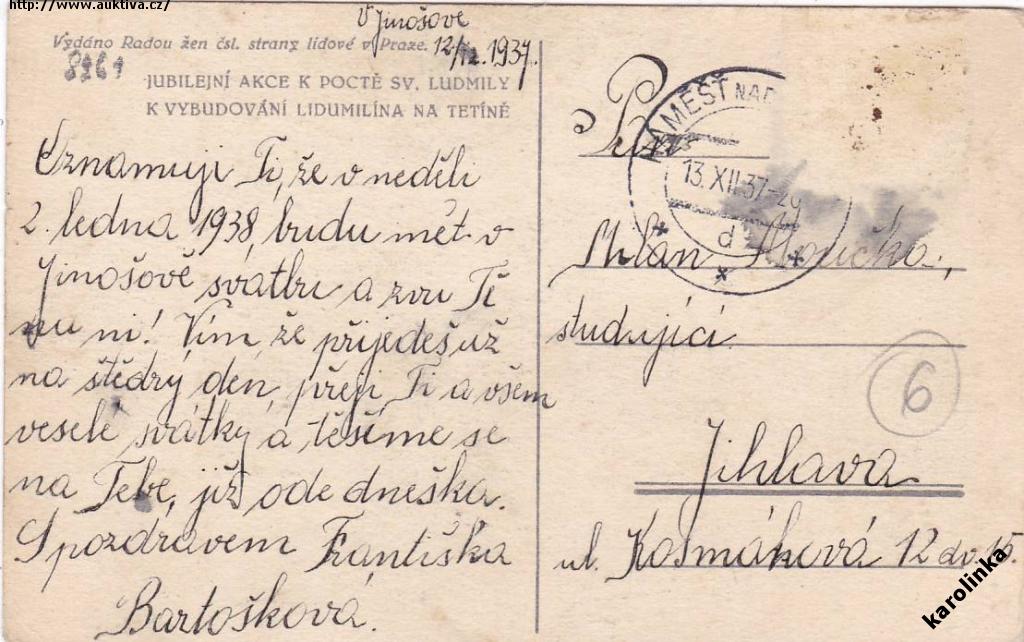 http://www.auktiva.cz/
V Jinošově
12/12. 1937.
Vydáno Radou žen čsl. strany lidové v Praze.
8261
JUBILEJNÍ AKCE K POCTĚ SV. LUDMILY
K VYBUDOVÁNÍ LIDUMILÍNA NA TETÍNĚ
Oznamuji Ti, že v neděli
2. ledna 1938, budu mět v
Jinošově svatbu a zvu Tě
na ni! Vím, že přijedeš už
na štědrý den, přeji Ti a všem
veselé svátky a těšíme se
na Tebe, již ode dneška.
S pozdravem Františka
Bartošková.
NÁMĚŠŤ NAD
13.XII.37-
d
P.
Milan
studující
6
Jihlava
ul. Kosmákova 12 dv. 15.
karolinka